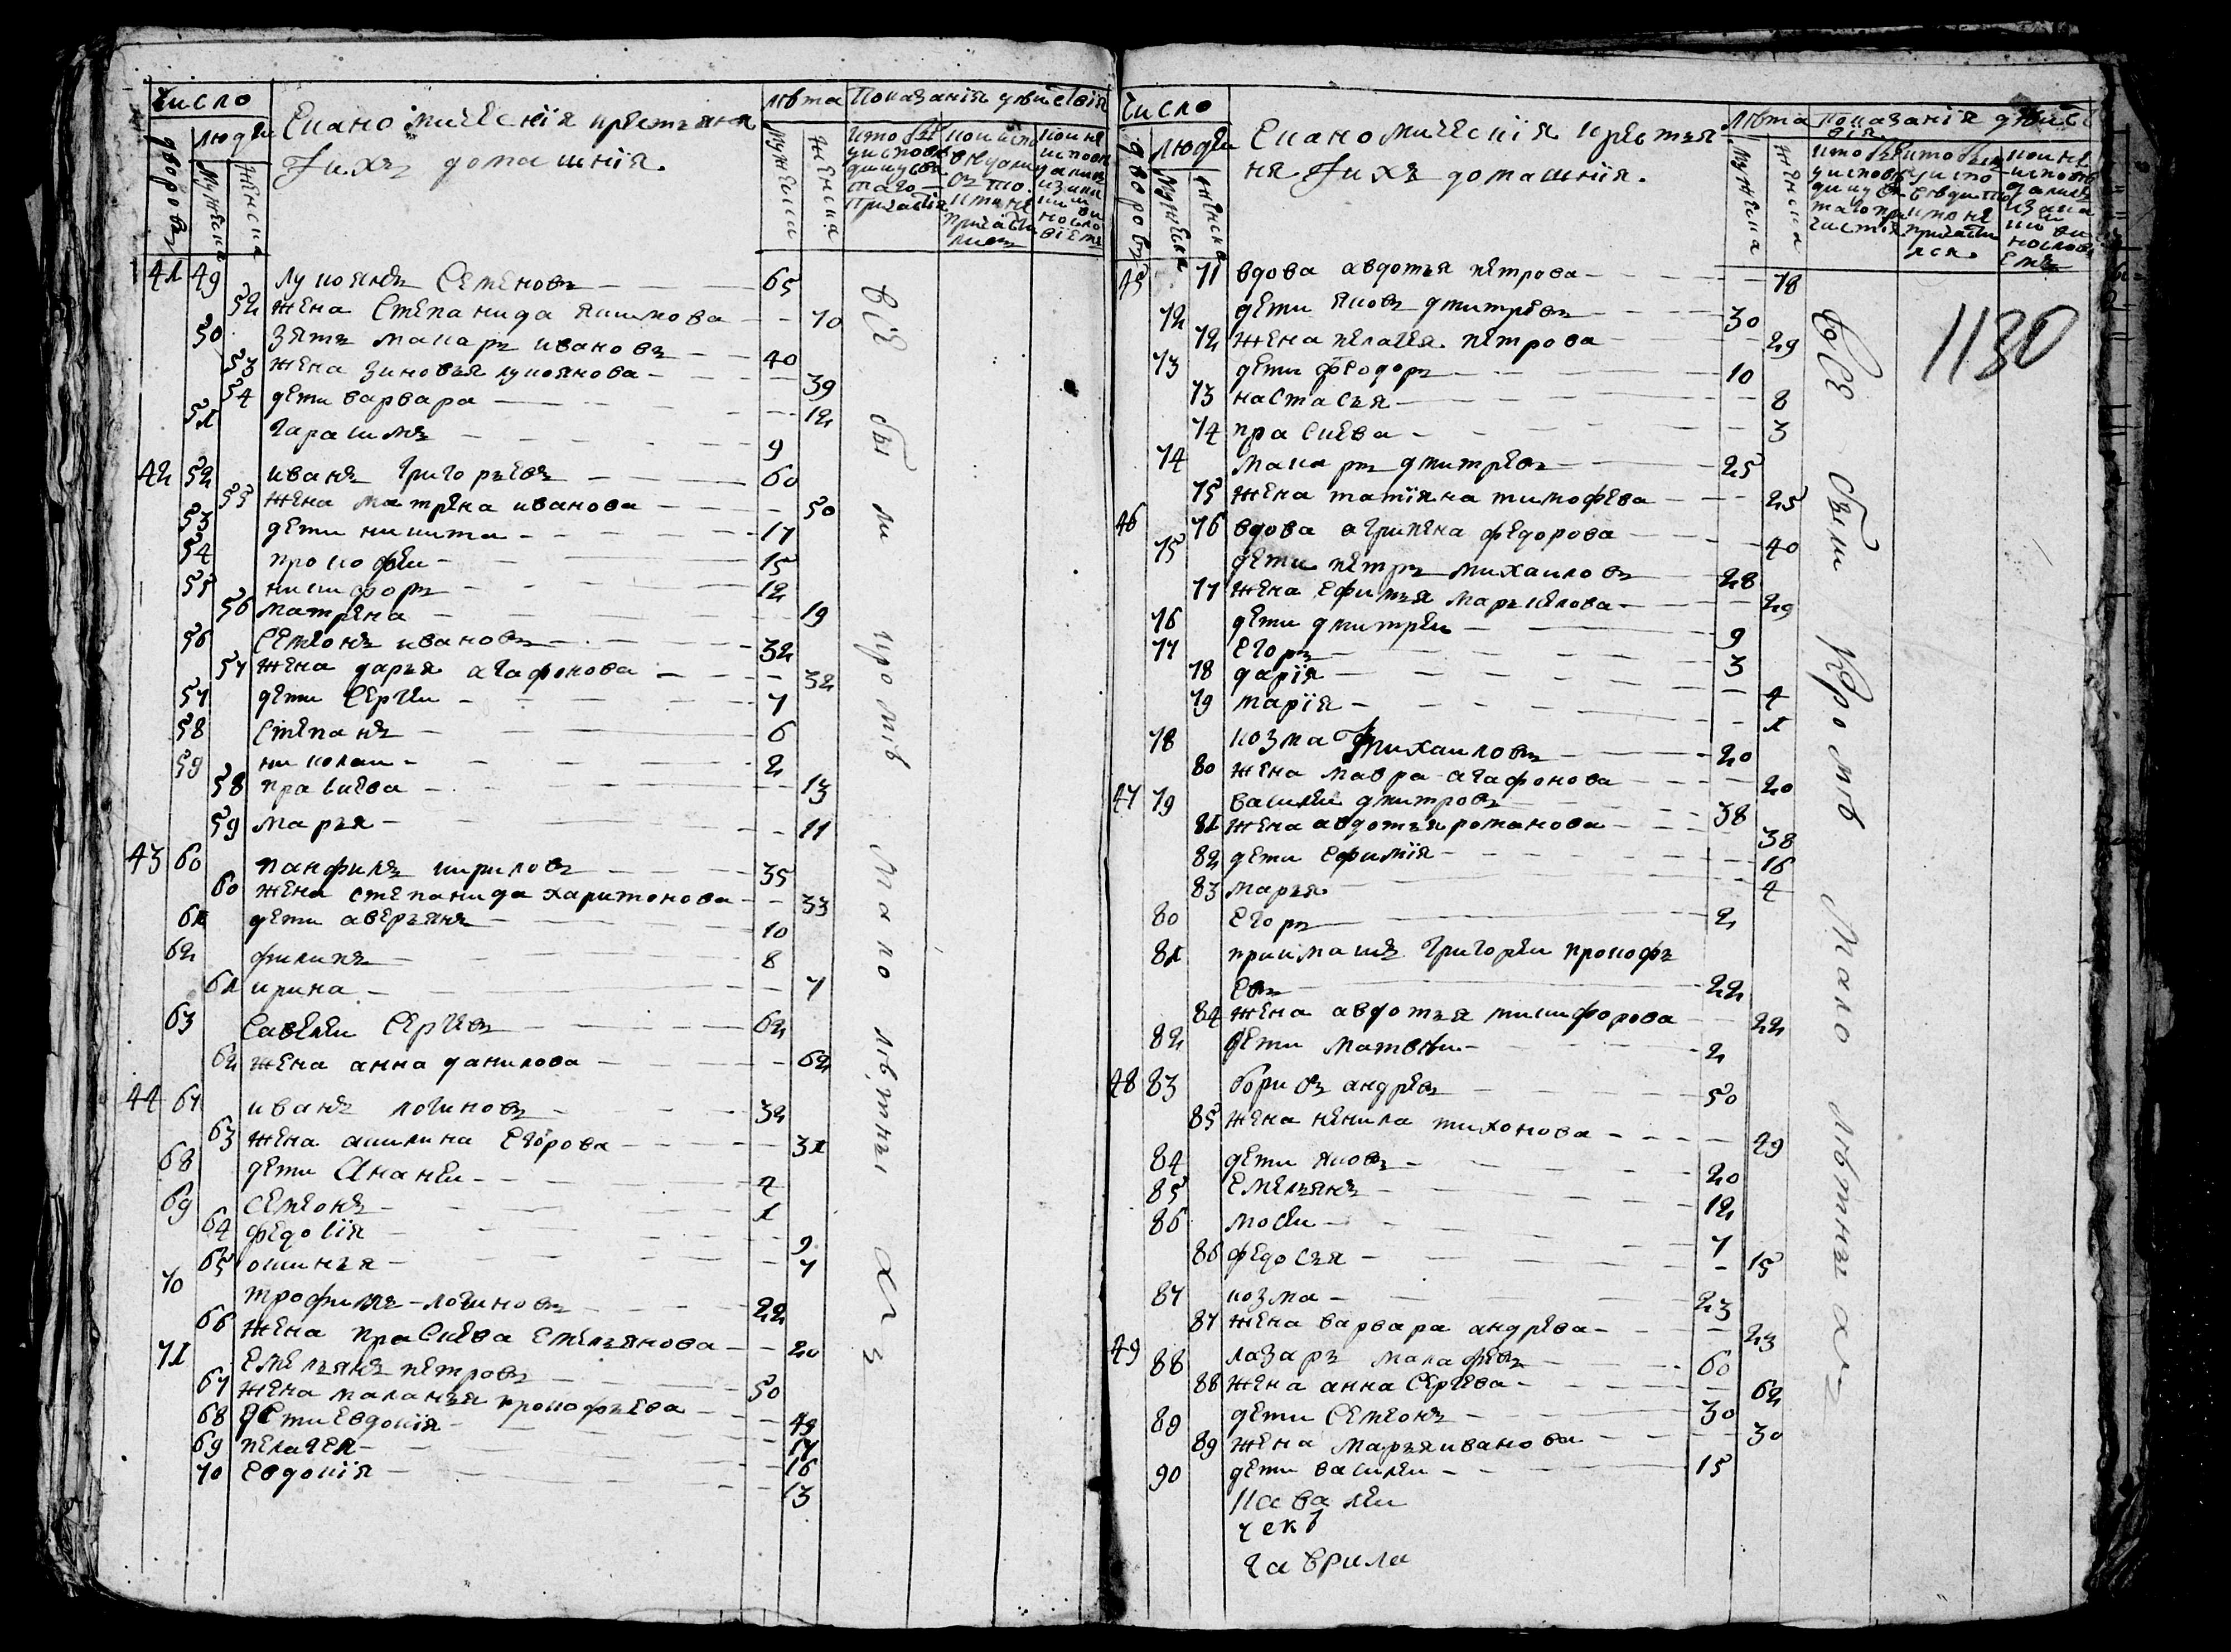 число
людеи
дворовъ
мужеска
женска
Економическия крестьяня
и ихъ домашнія.
лѣта
мужеска
женска
Показанія дѣиствія
41 49 лукоянъ Семеновъ 65
52 жена Степанида якимова 70
50 зять макаръ ивановъ 40
53 жена зиновья лукоянова 39
54 дети варвара 12
51 гарасимъ 9
42 52 иванъ григорьевъ 60
55 жена матрена иванова 50
53 дети никита 17
54 прокофеи 15
55 никифоръ 12
56 матрена 19
56 Семионъ ивановъ 32
57 жена дарья агафонова 32
57 дети Сергеи 7
58 Степанъ 6
59 николаи 2
58 прасковa 13
59 марья 11
43 60 панфилъ кириловъ 35
60 жена степанида харитонова 33
61 дети аверьянъ 10
62 филипъ 8
61 ирина 7
63 Савелеи Сергевъ 62
62 жена анна данилова 62
44 67 иванъ логиновъ 32
63 жена акилина Егорова 31
68 дети Ананеи 4
69 Семионъ 1
64 федосія 9
65 оксинья 7
70 трофимъ логиновъ 22
66 жена праскева Емельянова 20
71 Емельянъ петровъ 50
67 жена маланья прокофьева 49
68 дети Евдокія 17
69 пелагея 16
70 Евдокія 13
всѣ были кромѣ малолѣтныхъ
число
дворовъ
людеи
мужеска
женска
Економическия крестья
ня и ихъ домашнія.
лѣта
мужеска
женска
показанія дѣист
вія
45 71 вдова авдотья петрова 78
72 дети яковъ дмитревъ 30
72 жена пелагея петрова 29
73 дети феодоръ 10
73 настасья 8
74 праскева 3
74 макаръ дмитревъ 25
75 жена татіяна тимофева 25
46 76 вдова агрипена федорова 40
75 дети петръ михаиловъ 28
77 жена Ефимья маркелова 29
76 дети дмитреи 9
77 Егоръ 3
78 дарія 4
79 марія 1
78 козма михаиловъ 20
80 жена мавра агафонова 20
47 79 василеи дмитровъ 38
81 жена авдотья романова 38
82 дети Ефимія 16
83 марья 4
80 Егоръ 2
81 приимышъ григореи прокофь
Евъ 22
84 жена авдотья никифорова 22
82 дети матвеи 2
48 83 борисъ андревъ 50
85 жена ненила тихонова 49
84 дети яковъ 20
85 Емельянъ 12
86 мосеи 7
86 федосья 15
87 козма 23
87 жена варвара андрева 23
49 88 лазаръ малафевъ 60
88 жена анна Сергева 62
89 дети Семионъ 30
89 жена марья иванова 30
90 дети василеи 15
всѣ были кромѣ малолѣтныхъ
1130
гаврила